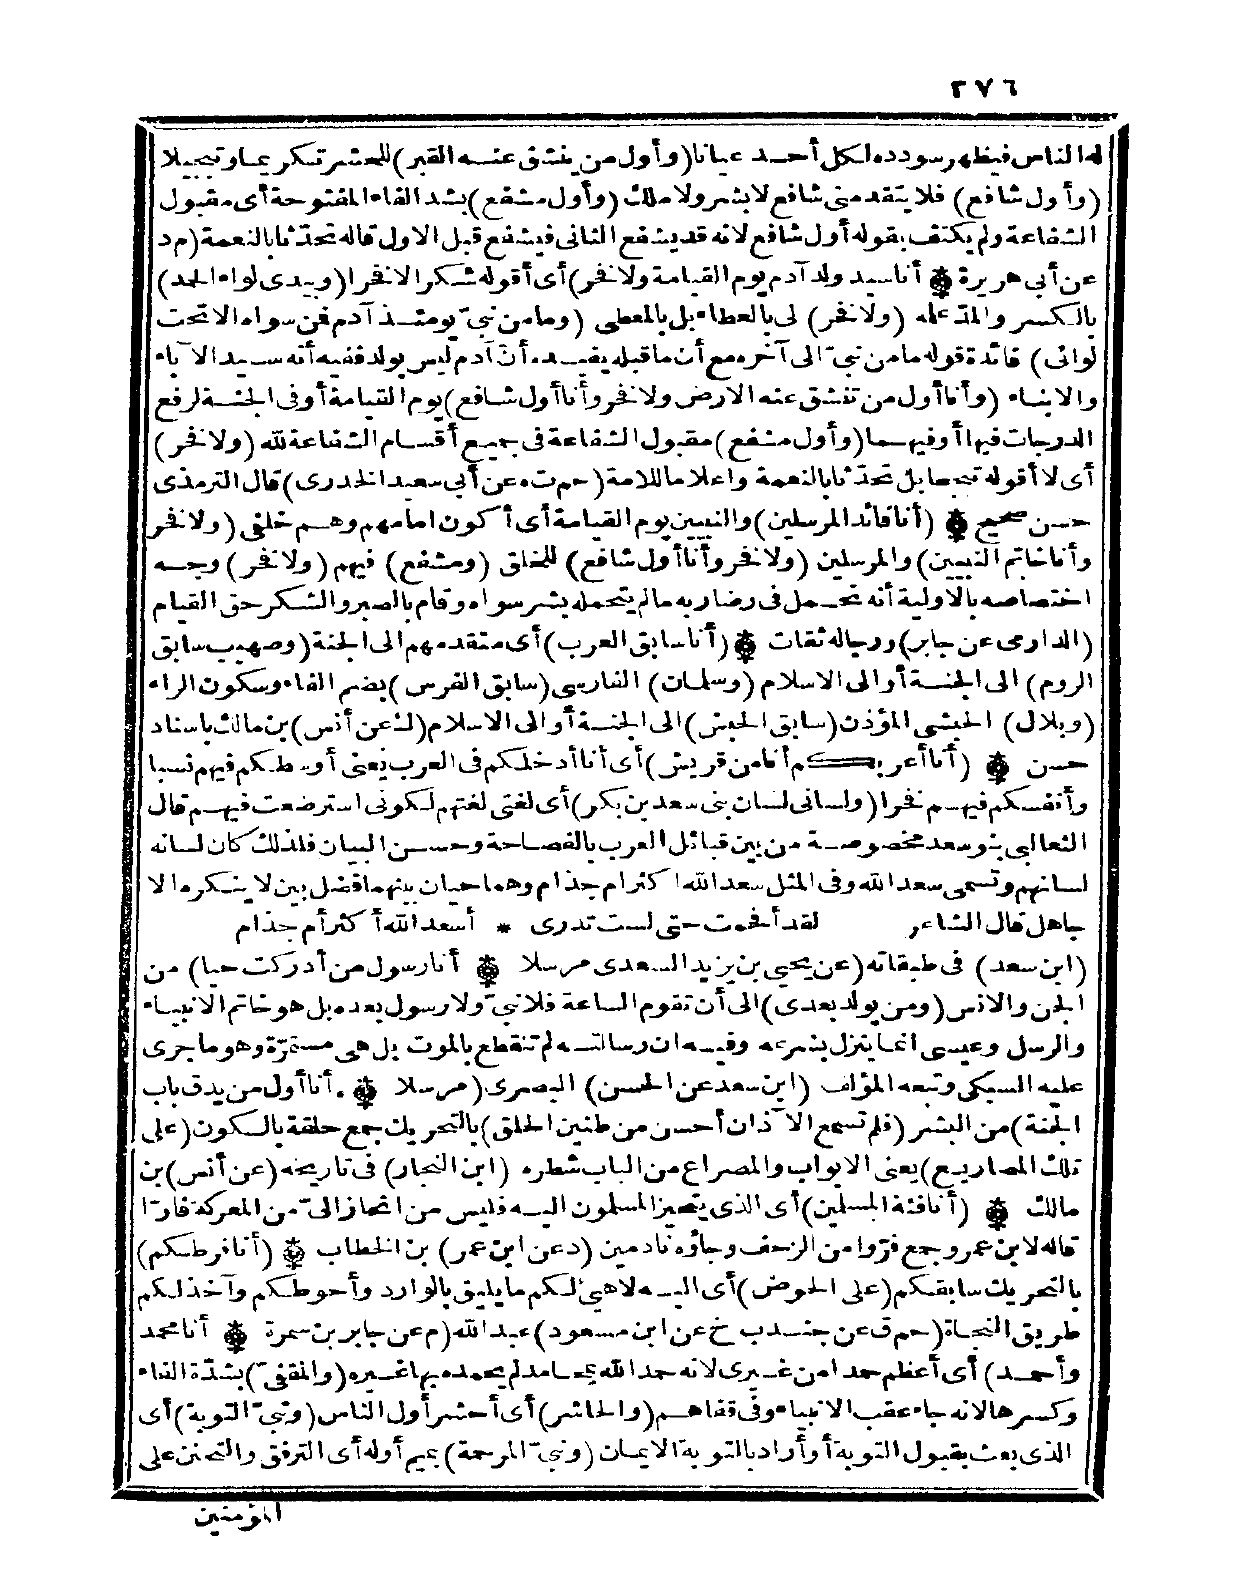 ٣٧٦
له الناس فيظهر سودده لكل أحد عيانا (وأول من ينشق عنه القبر) للحشر تكريما وتبجيلا
(وأول شافع) فلا يتقدمنى شافع لا بشر ولا ملك (وأول مشفع) بشد الفاء المفتوحة أى مقبول
الشفاعة ولم يكتف بقوله أول شافع لانه قد يشفع الثانى فيشفع قبل الاول قاله تحدّثا بالنعمة (م د
عن أبى هريرة ۞ أنا سيد ولد آدم يوم القيامة ولا فخر) أى أقوله شكرا لا فخرا (وبيدى لواء الحمد)
بالكسر والمدّ علمه (ولا فخر) لى بالعطاء بل بالمعطى (وما من نبىّ يومئذ آدم فمن سواه الا تحت
لوائى) فائدة قوله ما من نبىّ الى آخره مع أن ما قبله يفيده أنّ آدم ليس بولد ففيه أنه سيد الآباء
والابناء (وأنا أول من تنشق عنه الارض ولا فخر وأنا أول شافع) يوم القيامة أو فى الجنة لرفع
الدرجات فيها أو فيهما (وأول مشفع) مقبول الشفاعة فى جميع أقسام الشفاعة لله (ولا فخر)
أى لا أقوله تبجحا بل تحدّثا بالنعمة واعلاما للامة (حم ت ه عن أبى سعيد الخدرى) قال الترمذى
حسن صحيح ۞ (أنا قائد المرسلين) والنبيين يوم القيامة أى أكون امامهم وهم خلفى (ولا فخر
وأنا خاتم النبيين) والمرسلين (ولا فخر وأنا أول شافع) للخلق (ومشفع) فيهم (ولا فخر) وجه
اختصاصه بالاولية أنه تحمل فى رضا ربه ما لم يتحمله بشر سواه وقام بالصبر والشكر حق القيام
(الدارمى عن جابر) ورجاله ثقات ۞ (أنا سابق العرب) أى متقدمهم الى الجنة (وصهيب سابق
الروم) الى الجنة أو الى الاسلام (وسلمان) الفارسى (سابق الفرس) بضم الفاء وسكون الراء
(وبلال) الحبشى المؤذن (سابق الحبش) الى الجنة أو الى الاسلام (ك عن أنس) بن مالك باسناد
حسن ۞ (أنا أعربكم أنا من قريش) أى أنا أدخلكم فى العرب يعنى أوسطكم فيهم نسبا
وأنفسكم فيهم فخرا (ولسانى لسان بنى سعد بن بكر) أى لغتى لغتهم لكونى استرضعت فيهم قال
الثعالبى بنو سعد مخصوصة من بين قبائل العرب بالفصاحة وحسن البيان فلذلك كان لسانه
لسانهم وتسمى سعد الله وفى المثل سعد الله اكثر أم جذام وهما حيان بينهما فضل بين لا ينكره الا
جاهل قال الشاعر لقد أفحمت حتى لست تدرى * أسعد الله أكثر أم جذام
(ابن سعد) فى طبقاته (عن يحيى بن يزيد السعدى مرسلا ۞ أنا رسول من أدركت حيا) من
الجن والانس (ومن يولد بعدى) الى أن تقوم الساعة فلا نبىّ ولا رسول بعده بل هو خاتم الانبياء
والرسل وعيسى انما ينزل بشرعه وفيه ان رسالته لم تنقطع بالموت بل هى مستمرّة وهو ما جرى
عليه السبكى وتبعه المؤلف (ابن سعد عن الحسن) البصرى (مرسلا ۞ أنا أول من يدق باب
الجنة) من البشر (فلم تسمع الآذان أحسن من طنين الحلق) بالتحريك جمع حلقة بالسكون (على
تلك المصاريع) يعنى الابواب والمصراع من الباب شطره (ابن النجار) فى تاريخه (عن أنس) بن
مالك ۞ (أنا فئة المسلمين) أى الذى يتحيز المسلمون اليه فليس من انحاز الىّ من المعركة فارّا
قاله لابن عمر وجمع فرّوا من الزحف وجاؤه نادمين (د عن ابن عمر) بن الخطاب ۞ (أنا فرطكم)
بالتحريك سابقكم (على الحوض) أى اليه لاهيئ لكم ما يليق بالوارد وأحوطكم وآخذ لكم
طريق النجاة (حم ق عن جندب خ عن ابن مسعود) عبد الله (م عن جابر بن سمرة ۞ أنا محمد
وأحمد) أى أعظم حمدا من غيرى لانه حمد الله بمحامد لم يحمده بها غيره (والمقفىّ) بشدّة الفاء
وكسرها لانه جاء عقب الانبياء وفى قفاهم (والحاشر) أى أحشر أول الناس (ونبىّ التوبة) أى
الذى بعث بقبول التوبة أو أراد بالتوبة الايمان (ونبىّ المرحمة) بميم أوله أى الترفق والتحنن على
المؤمنين